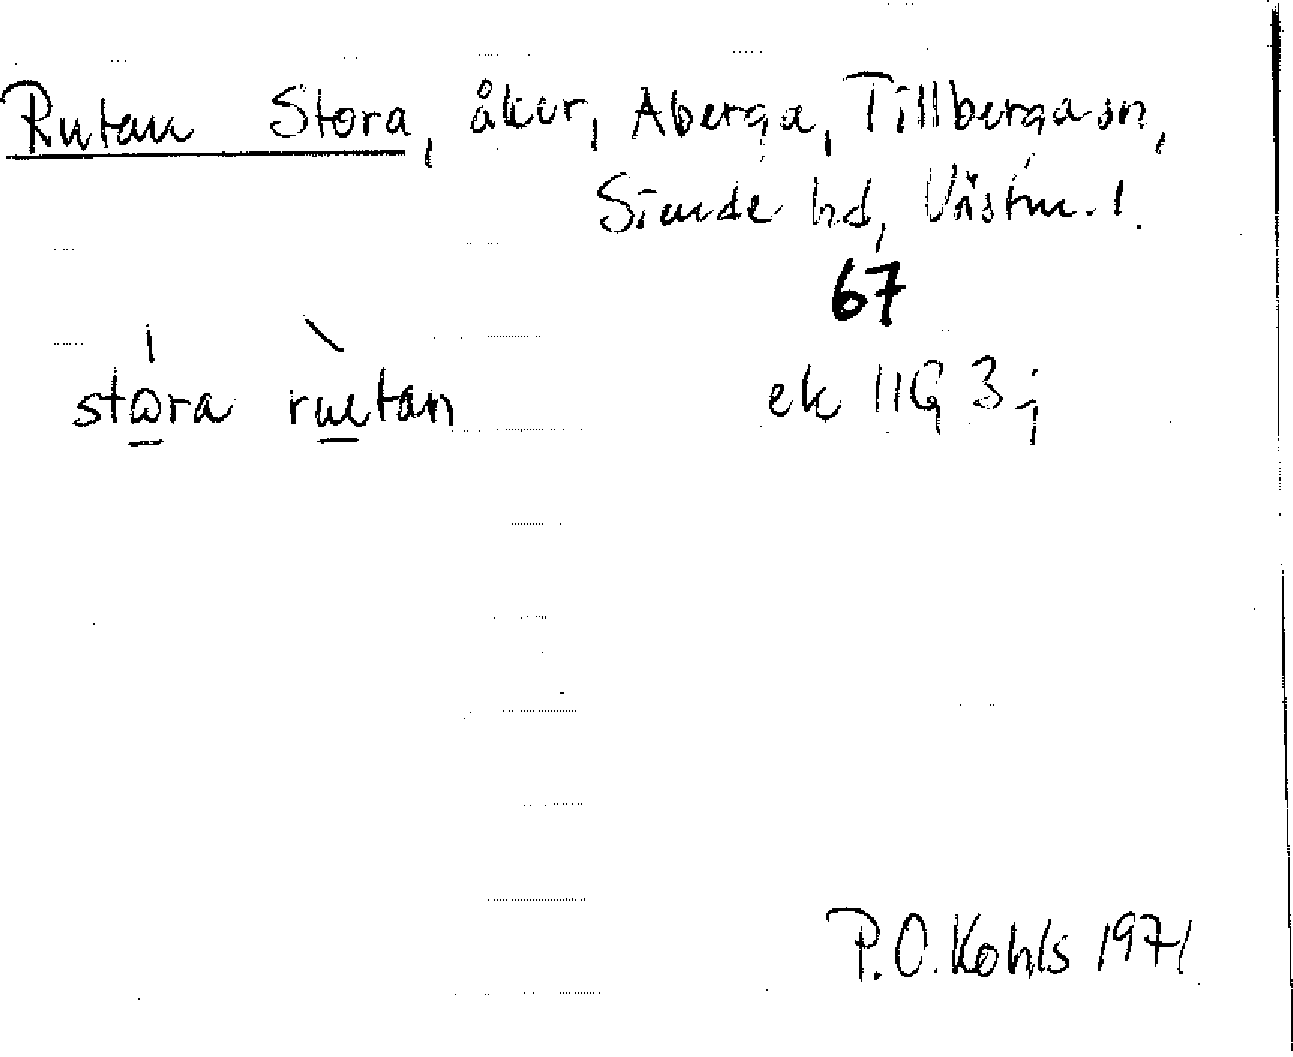 Rutan Stora, åker, Aberga, Tillberga sn,
Siende hd, Västm. l.
67
stora rutan ek 11G 3j
P.O. Kohls 1971